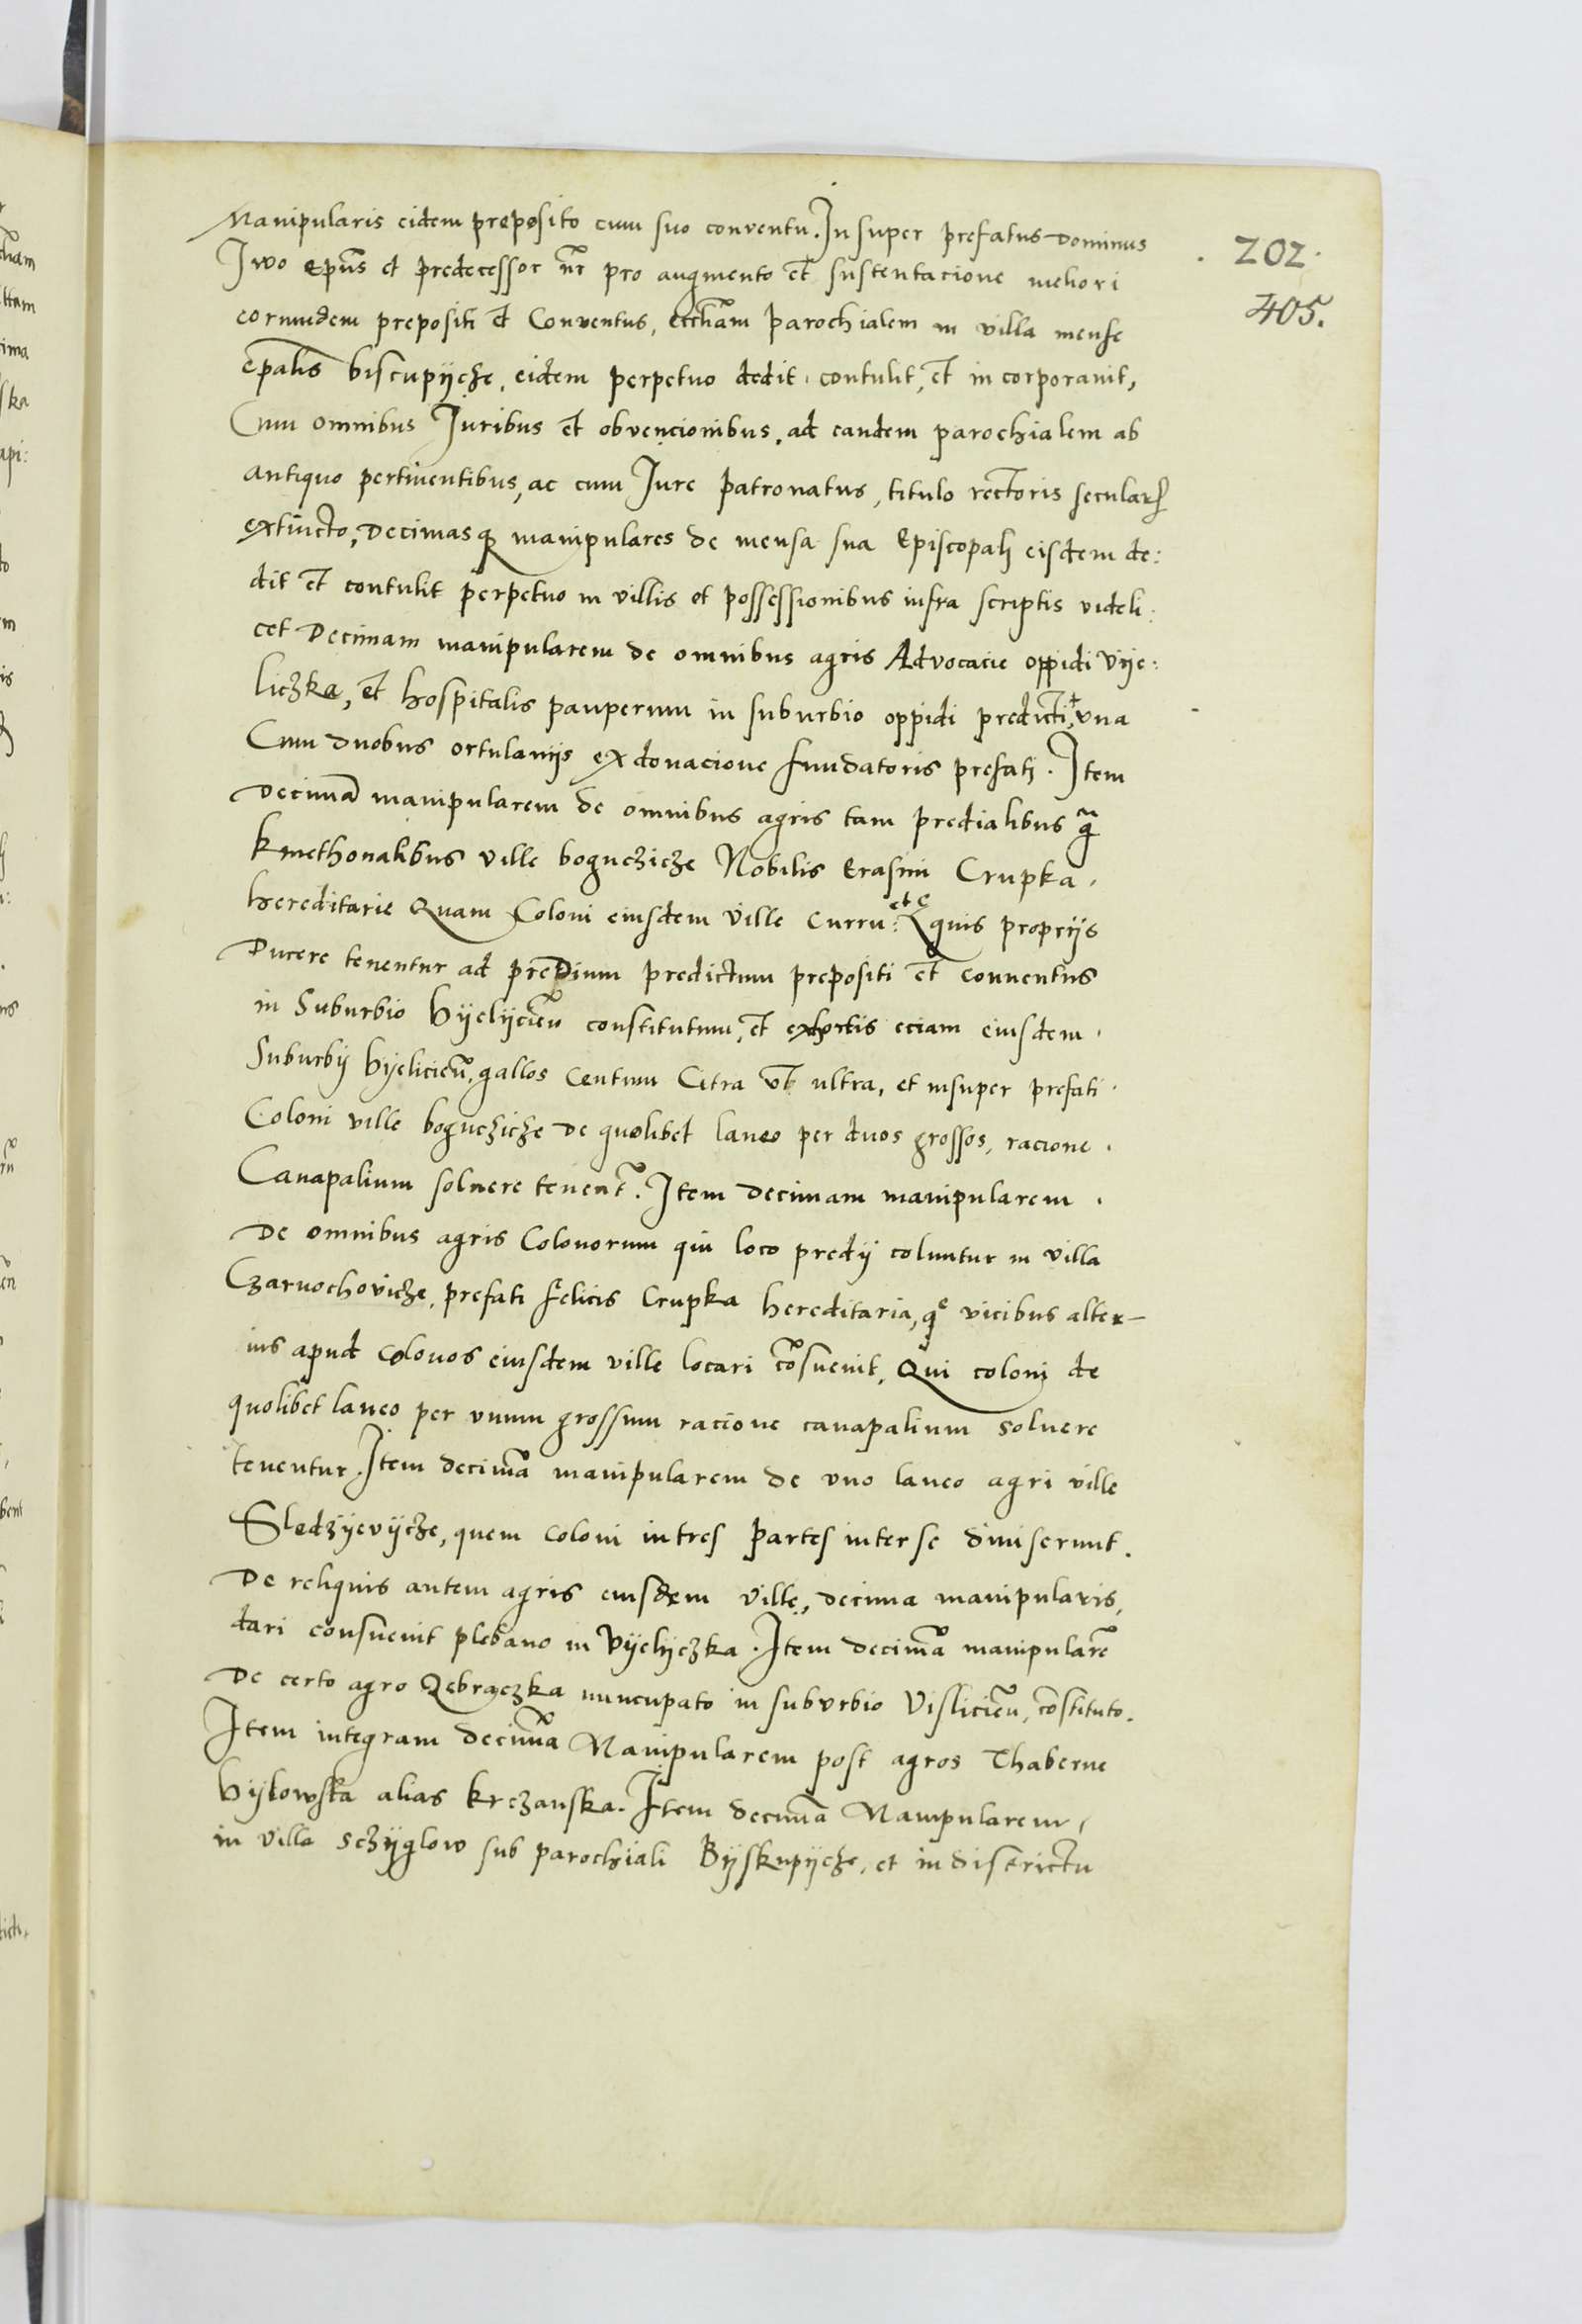 Manipularis eidem preposito cum suo conventu. In super prefatus Dominus
202.
Iwo epūs et predecessor nr̄ pro augmento et sustentacione meliori
405.
eorumdem prepositi et Conventus, eccliam parochialem in villa mense
epalis biscupijcze, eidem perpetuo dedit. contulit, et incorporavit,
Cum omnibus Iuribus et obvencionibus, ad eandem parochialem ab
antiquo pertinentibus, ac cum Iure patronatus, titulo rectoris secularis
extincto, Decimasq̨ manipulares de mensa sua Episcopali eisdem de:
dit et contulit perpetuo in villis et possessionibus infra scriptis videli:
cet Decimam manipularem de omnibus agris Advocacie oppidi Vije:
liczka, et hospitalis pauperum in suburbio oppidi predicti, vna
Cum duobus ortulanijs ex donacione fundatoris prefati. Item
Decimā manipularem de omnibus agris tam predialibus q̃
kmethonalibus ville boguczicze Nobilis Erasmi Crupka.
hereditarie Quam Coloni eiusdem ville Curru: et equis proprijs
Ducere tenentur ad preDium predictum prepositi et conventus
in Suburbio Vijelijcien̄ constitutum, et ex hortis eciam eiusdem.
Suburbij Vijelicien̄, gallos Centum Citra vl̄ ultra, et insuper prefati.
Coloni ville boguczicze De quolibet laneo per duos grossos, racione.
Canapalium solvere tenent̄. Item decimam manipularem.
De omnibus agris Colonorum qui loco predij coluntur in villa
Czarnochovicze, prefati felicis Crupka hereditaria, q̨ vicibus alter–
ius apud colonos eiusdem ville locari cōsuevit, Qui coloni de
quolibet laneo per vnum grossum racione canapalium solvere
tenentur. Item decimā manipularem de vno laneo agri ville
Sledzijevijcze, quem coloni in tres partes inter se diviserunt.
De reliquis autem agris eiusdem ville, decima manipularis,
dari consuevit plebano in Vijelijczka. Item decimā manipularē
De certo agro Zebraczka nuncupato in suburbio Vislicien̄, cōstituto.
Item integram decimā Manipularem post agros Thaberne
Vijkowska alias krczanska. Item decimā Manipularem,
in villa Sczijglow sub parochiali Bijskupijcze, et in districtu